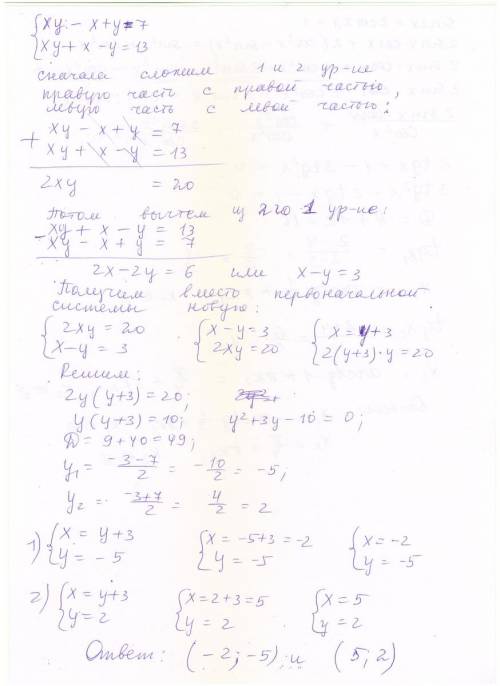 { xy - x + y = 7
{ xy + x - y = 13
сначала сложим 1 и 2 ур-ие
правую часть с правой частью,
левую часть с левой частью:
+ xy - x + y = 7
xy + x - y = 13
2xy = 20
Потом вычтем из 2го 1 ур-ие:
- xy + x - y = 13
xy - x + y = 7
2x - 2y = 6 или x - y = 3
Получим вместо первоначальной
системы новую:
{ 2xy = 20 { x - y = 3 { x = y + 3
{ x - y = 3 { 2xy = 20 { 2(y+3)·y = 20
Решим:
2y(y+3) = 20;
y(y+3) = 10; y² + 3y - 10 = 0;
D = 9 + 40 = 49;
y₁ = (-3-7)/2 = -10/2 = -5;
y₂ = (-3+7)/2 = 4/2 = 2
1) { x = y + 3 { x = -5+3 = -2 { x = -2
{ y = -5 { y = -5 { y = -5
2) { x = y + 3 { x = 2 + 3 = 5 { x = 5
{ y = 2 { y = 2 { y = 2
Ответ: (-2; -5) и (5; 2)